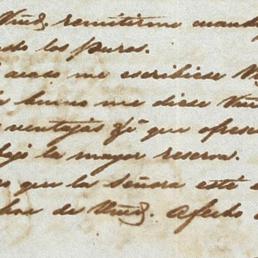 Vmd. remitirme cuando
los puros.
acaso me escribiese V
bueno me dirse Vmd
ventajas qe. que ofrese
bajo la mayor reserva.
que la Señora esté
de Vmd. Afecho